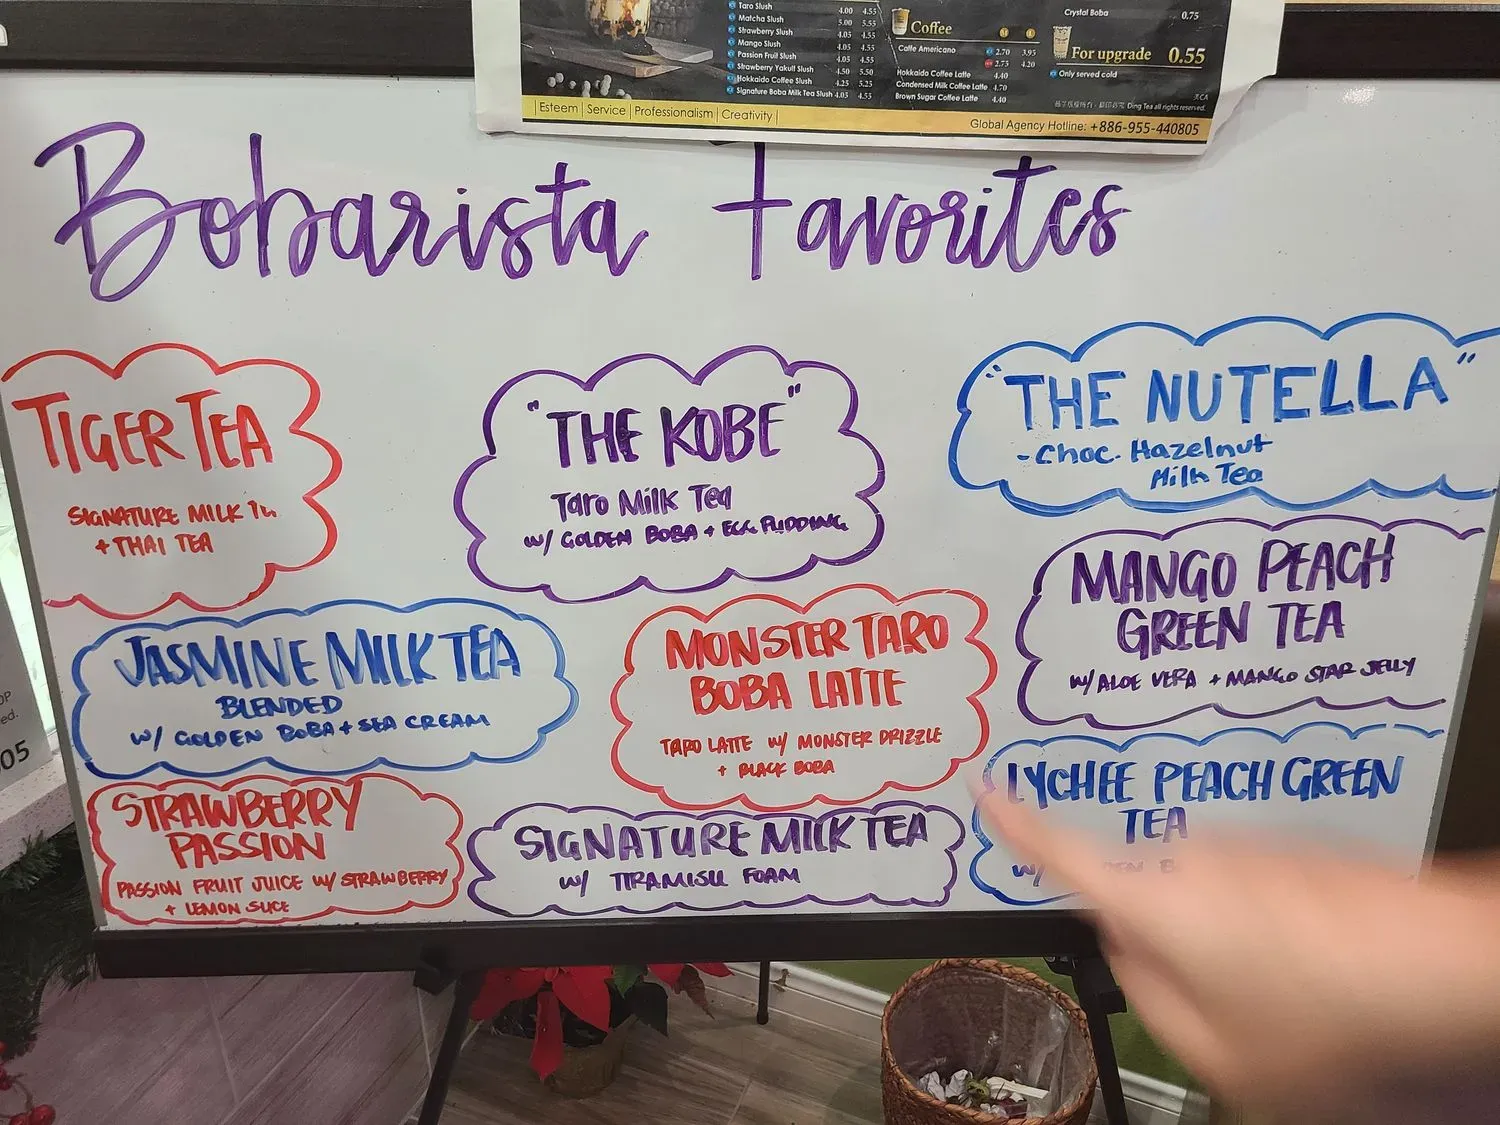 Taro Slush 4.00 4.55
Matcha Slush 5.00 5.55
Strawberry Slush 4.05 4.55
Mango Slush 4.05 4.55
Passion Fruit Slush 4.05 4.55
Strawberry Yakult Slush 4.50 5.50
Hokkaido Coffee Slush 4.25 5.25
Signature Boba Milk Tea Slush 4.05 4.55
Coffee M L
Caffe Americano 2.70 3.95
2.75 4.20
Hokkaido Coffee Latte 4.40
Condensed Milk Coffee Latte 4.70
Brown Sugar Coffee Latte 4.40
Crystal Boba 0.75
For upgrade 0.55
Only served cold
Ding Tea all rights reserved.
Esteem | Service | Professionalism | Creativity |
Global Agency Hotline: +886-955-440805
Bobarista Favorites
TIGER TEA
SIGNATURE MILK
+ THAI TEA
"THE KOBE"
Taro Milk Tea
W/ GOLDEN BOBA + EGG PUDDING
"THE NUTELLA"
- Choc. Hazelnut
Milk Tea
JASMINE MILK TEA
BLENDED
W/ GOLDEN BOBA + SEA CREAM
MONSTER TARO
BOBA LATTE
TARO LATTE W/ MONSTER DRIZZLE
+ BLACK BOBA
MANGO PEACH
GREEN TEA
W/ ALOE VERA + MANGO STAR JELLY
STRAWBERRY
PASSION
PASSION FRUIT JUICE W/ STRAWBERRY
+ LEMON SLICE
SIGNATURE MILK TEA
W/ TIRAMISU FOAM
LYCHEE PEACH GREEN
TEA
W/
OP
ed.
05